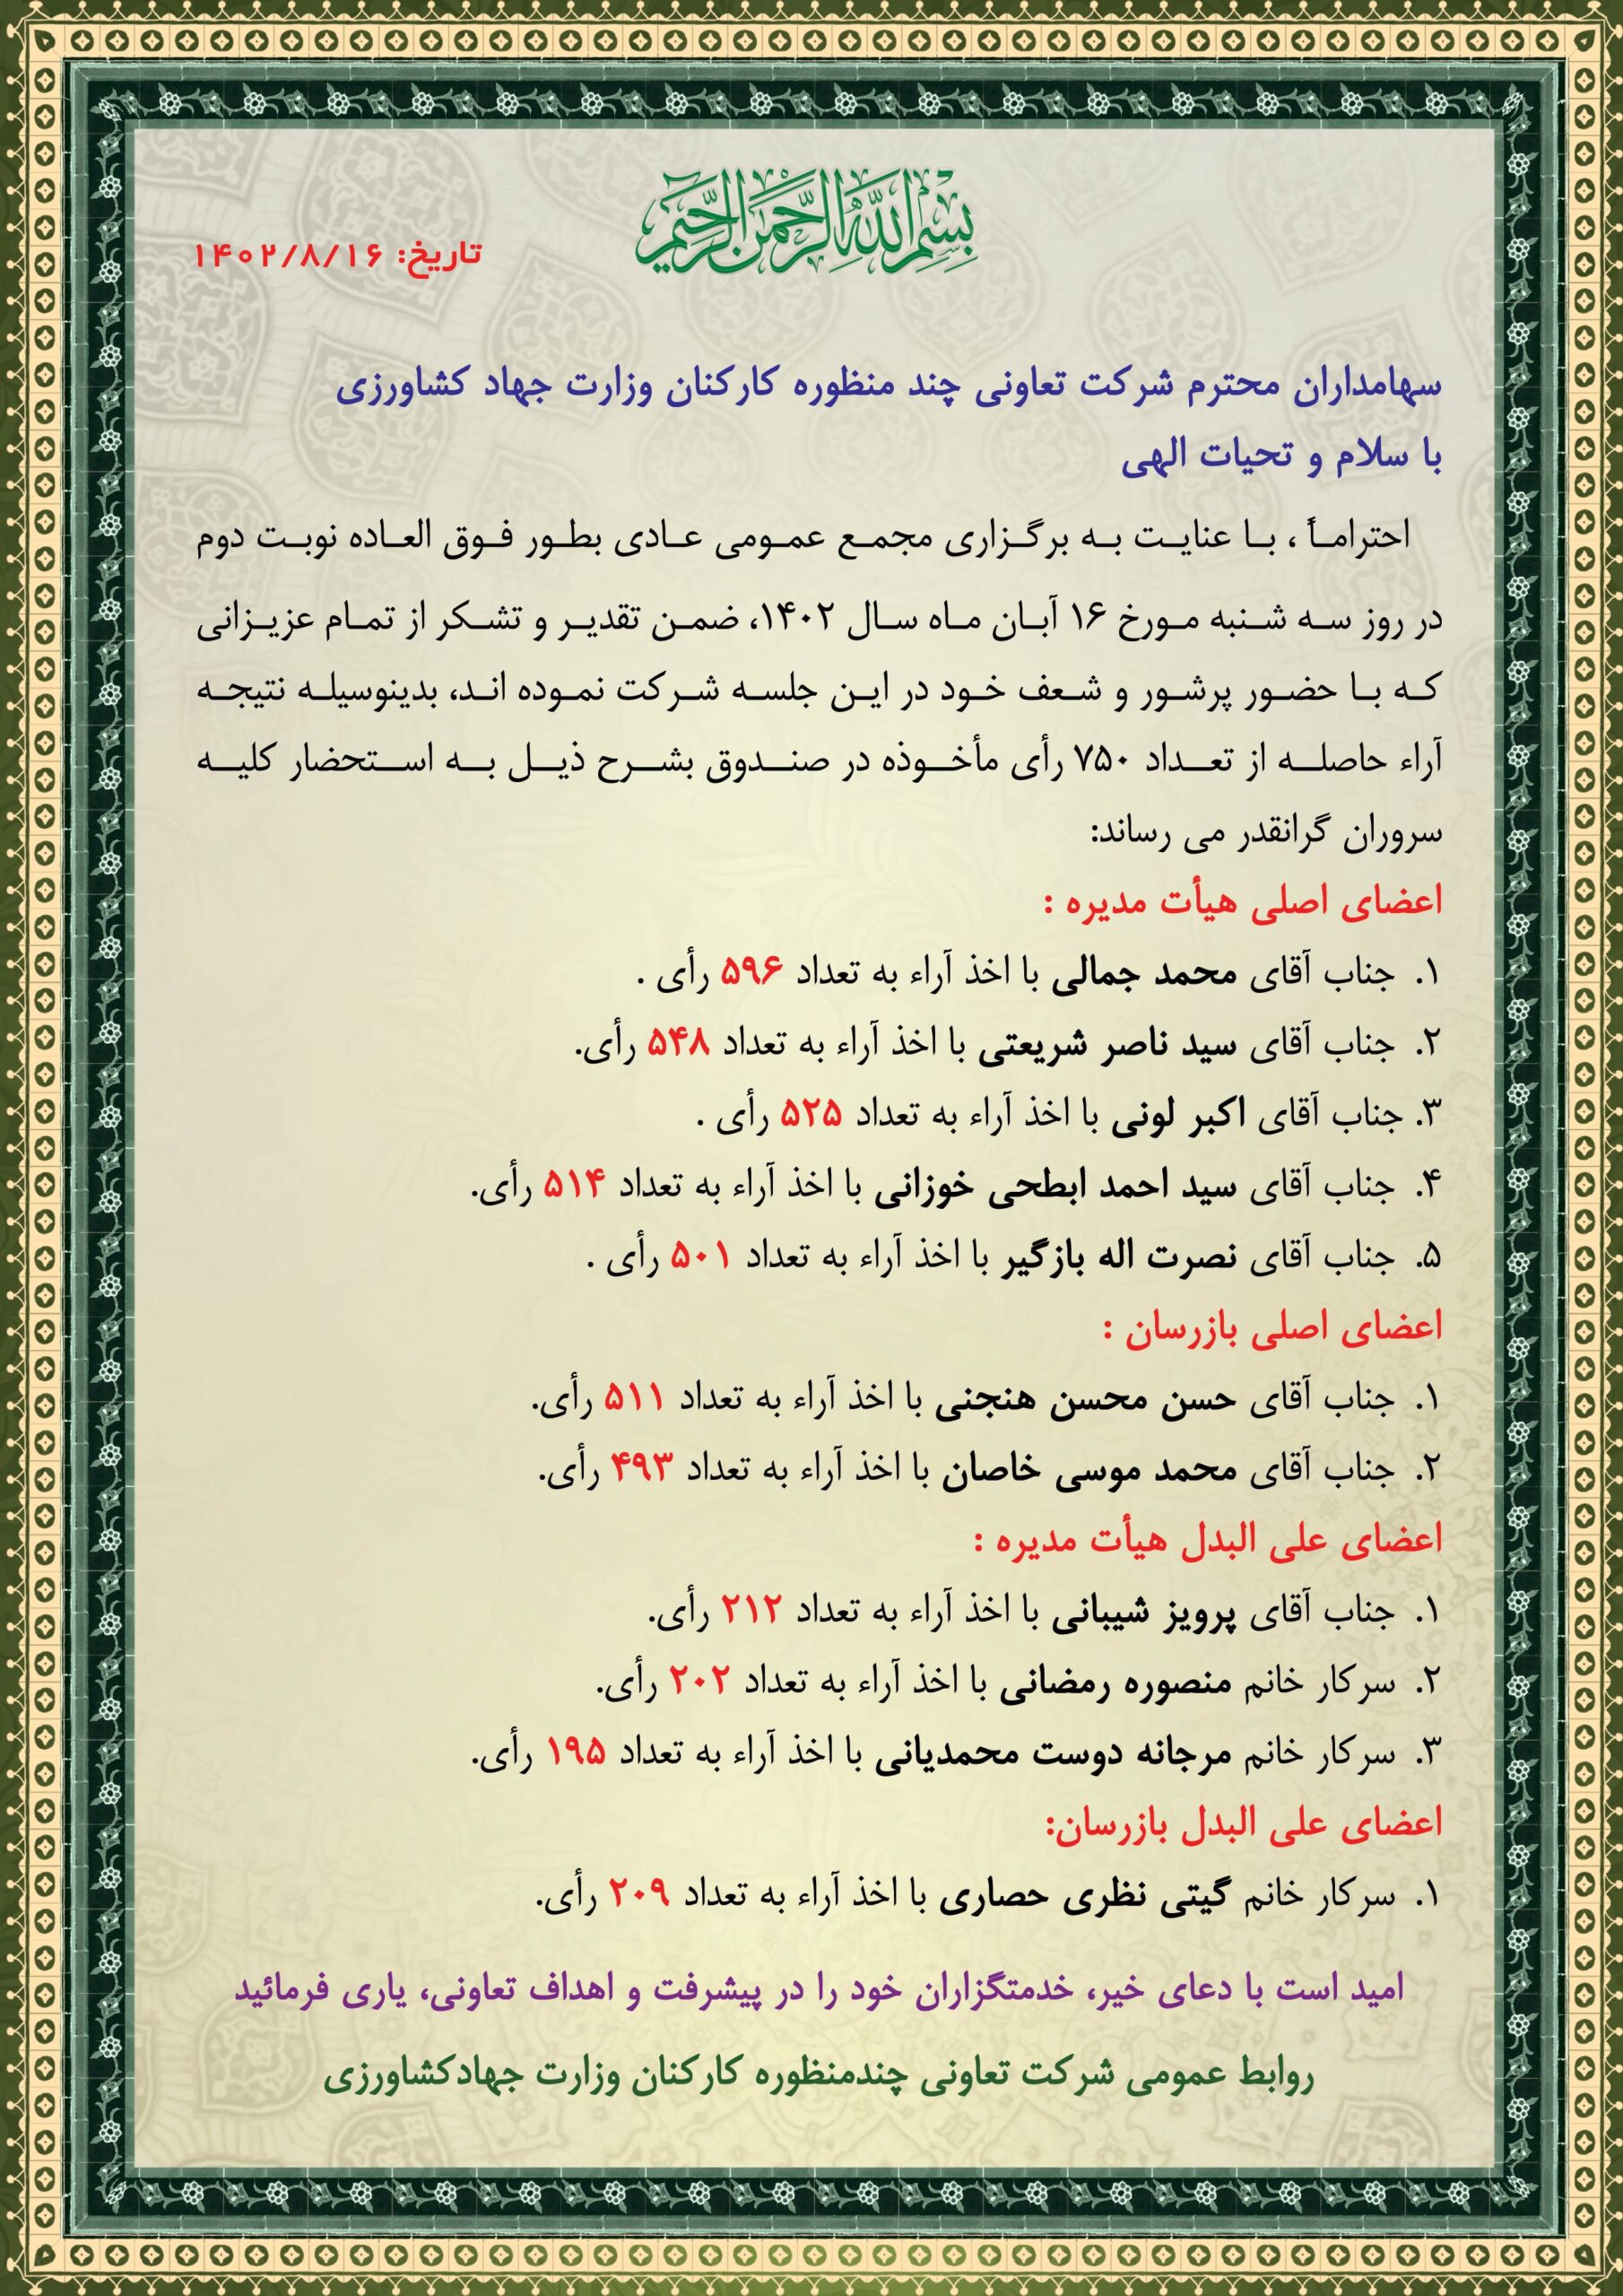 بسم الله الرحمن الرحیم
تاریخ: ۱۴۰۲/۸/۱۶
سهامداران محترم شرکت تعاونی چند منظوره کارکنان وزارت جهاد کشاورزی
با سلام و تحیات الهی
احتراماً ، با عنایت به برگزاری مجمع عمومی عادی بطور فوق العاده نوبت دوم
در روز سه شنبه مورخ ۱۶ آبان ماه سال ۱۴۰۲، ضمن تقدیر و تشکر از تمام عزیزانی
که با حضور پرشور و شعف خود در این جلسه شرکت نموده اند، بدینوسیله نتیجه
آراء حاصله از تعداد ۷۵۰ رأی مأخوذه در صندوق بشرح ذیل به استحضار کلیه
سروران گرانقدر می رساند:
اعضای اصلی هیأت مدیره :
۱. جناب آقای محمد جمالی با اخذ آراء به تعداد ۵۹۶ رأی .
۲. جناب آقای سید ناصر شریعتی با اخذ آراء به تعداد ۵۴۸ رأی.
۳. جناب آقای اکبر لونی با اخذ آراء به تعداد ۵۲۵ رأی .
۴. جناب آقای سید احمد ابطحی خوزانی با اخذ آراء به تعداد ۵۱۴ رأی.
۵. جناب آقای نصرت اله بازگیر با اخذ آراء به تعداد ۵۰۱ رأی .
اعضای اصلی بازرسان :
۱. جناب آقای حسن محسن هنجنی با اخذ آراء به تعداد ۵۱۱ رأی.
۲. جناب آقای محمد موسی خاصان با اخذ آراء به تعداد ۴۹۳ رأی.
اعضای علی البدل هیأت مدیره :
۱. جناب آقای پرویز شیبانی با اخذ آراء به تعداد ۲۱۲ رأی.
۲. سرکار خانم منصوره رمضانی با اخذ آراء به تعداد ۲۰۲ رأی.
۳. سرکار خانم مرجانه دوست محمدیانی با اخذ آراء به تعداد ۱۹۵ رأی.
اعضای علی البدل بازرسان:
۱. سرکار خانم گیتی نظری حصاری با اخذ آراء به تعداد ۲۰۹ رأی.
امید است با دعای خیر، خدمتگزاران خود را در پیشرفت و اهداف تعاونی، یاری فرمائید
روابط عمومی شرکت تعاونی چندمنظوره کارکنان وزارت جهادکشاورزی